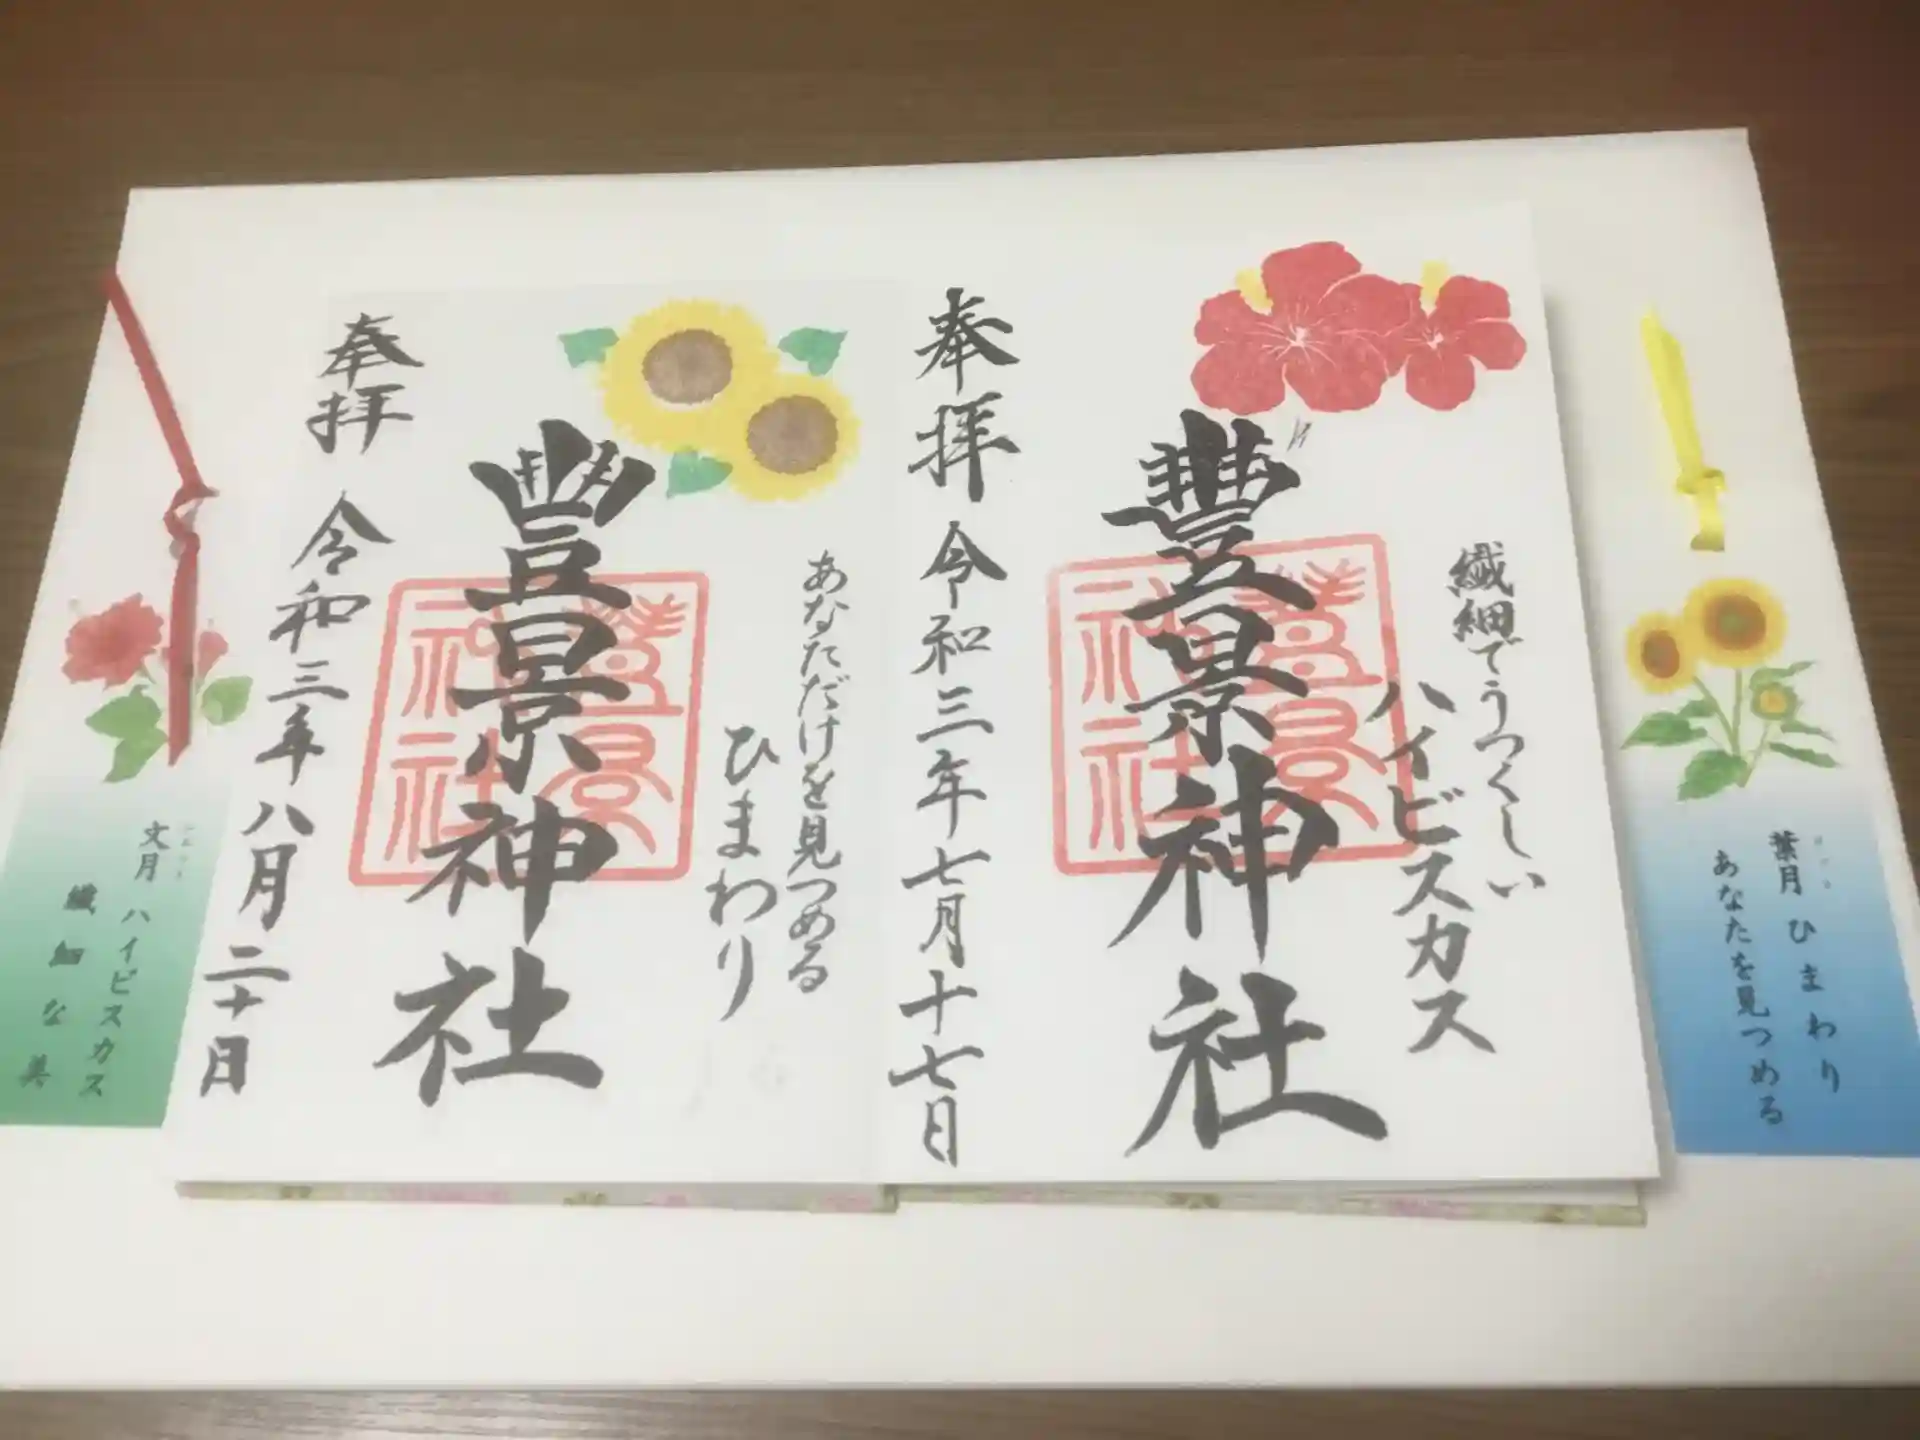 繊細でうつくしい
ハイビスカス
豊景神社
奉拝
令和三年七月十七日
あなただけを見つめる
ひまわり
豊景神社
奉拝
令和三年八月二十日
葉月 ひまわり
あなたを見つめる
文月 ハイビスカス
繊細な美
豊景
神社
豊景
神社